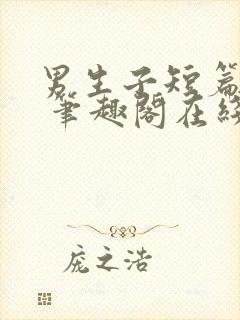 男生子短篇
笔趣阁在线
庞之浩